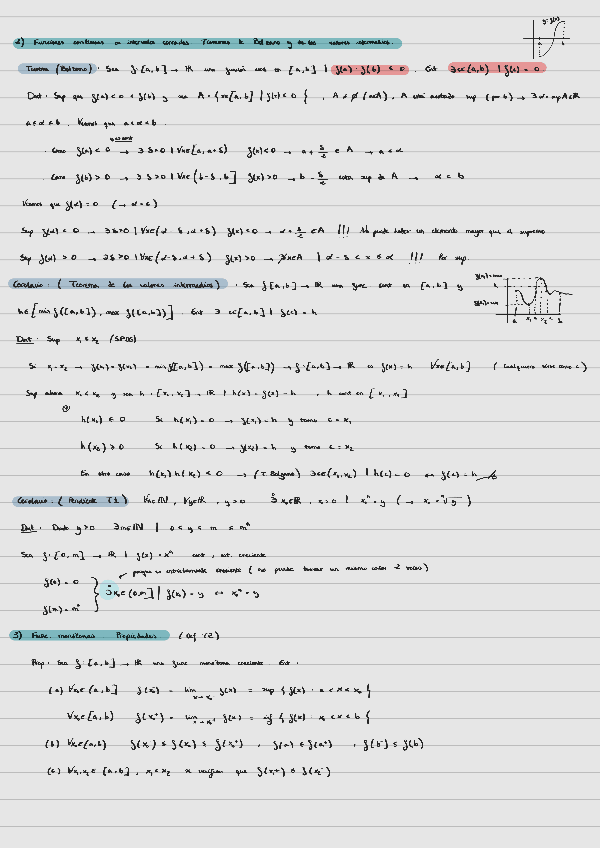 y=f(x)
a b
2) Funciones continuas en intervalos cerrados. Teorema de Bolzano y de los valores intermedios.
Teorema (Bolzano). Sea f: [a,b] → ℝ una función cont en [a,b] | f(a)·f(b) < 0. Ent ∃c∈(a,b) | f(c) = 0
Dem. Sup que f(a) < 0 < f(b) y sea A = {x∈[a,b] | f(x) < 0}, A ≠ ∅ (a∈A), A está acotado sup (por b) → ∃ α = sup A ∈ ℝ
a ≤ α ≤ b. Veamos que a < α < b.
· Como f(a) < 0 → ∃ δ>0 | ∀x∈[a, a+δ) f(x) < 0 → a + δ/2 ∈ A → a < α
· Como f(b) > 0 → ∃ δ>0 | ∀x∈(b-δ, b] f(x) > 0 → b - δ/2 cota sup de A → α < b
Veamos que f(α) = 0 (→ α = c)
Sup f(α) < 0 → ∃ δ>0 | ∀x∈(α-δ, α+δ) f(x) < 0 → α + δ/2 ∈ A !!! No puede haber un elemento mayor que el supremo
Sup f(α) > 0 → ∃ δ>0 | ∀x∈(α-δ, α+δ) f(x) > 0 → ∄x∈A | α-δ < x ≤ α !!! Por sup.
Corolario. (Teorema de los valores intermedios). Sea f: [a,b] → ℝ una func cont en [a,b] y
h∈[min f([a,b]), max f([a,b])]. Ent ∃ c∈[a,b] | f(c) = h
Dem. Sup x₁ ≤ x₂ (SPDG)
Si x₁ = x₂ → f(x₁) = f(x₂) = min f([a,b]) = max f([a,b]) → f: [a,b] → ℝ es f(x) = h ∀x∈[a,b] (Cualquiera sirve como c)
Sup ahora x₁ < x₂ y sea h: [x₁, x₂] → ℝ | h(x) = f(x) - h, h cont en [x₁, x₂]
h(x₁) ≤ 0 Si h(x₁) = 0 → f(x₁) = h y tomo c = x₁
h(x₂) ≥ 0 Si h(x₂) = 0 → f(x₂) = h y tomo c = x₂
En otro caso h(x₁) h(x₂) < 0 → (T. Bolzano) ∃c∈(x₁, x₂) | h(c) = 0 ↔ f(c) = h
Corolario. (Pendiente T1) ∀n∈ℕ, ∀y∈ℝ, y > 0 ∃ x₀∈ℝ, x₀ > 0 | x₀ⁿ = y (→ x₀ = ⁿ√y)
Dem. Dado y > 0 ∃m∈ℕ | 0 < y < m ≤ mⁿ
Sea f: [0, m] → ℝ | f(x) = xⁿ cont, est. creciente
porque es estrictamente creciente (no puede tomar un mismo valor 2 veces)
f(0) = 0
∃ x₀∈(0, m] | f(x₀) = y ↔ x₀ⁿ = y
f(m) = mⁿ
3) Func. monótonas. Propiedades
Prop. Sea f: [a,b] → ℝ una func monótona creciente. Ent.
(a) ∀x₀∈(a,b] f(x₀⁻) = lim x→x₀⁻ f(x) = sup {f(x) : a < x < x₀}
∀x₀∈[a,b) f(x₀⁺) = lim x→x₀⁺ f(x) = inf {f(x) : x₀ < x < b}
(b) ∀x₀∈(a,b) f(x₀⁻) ≤ f(x₀) ≤ f(x₀⁺), f(a) ≤ f(a⁺), f(b⁻) ≤ f(b)
(c) ∀x₁, x₂∈[a,b], x₁ < x₂ se verifica que f(x₁⁺) ≤ f(x₂⁻)